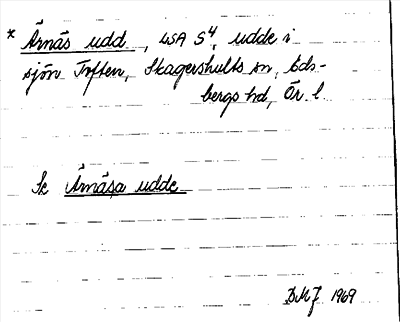 * Årnäs udd, LSA S4, udde i
sjön Toften, Skagershults sn, Eds-
bergs hd, Ör. l.
Se Årnäsa udde
DMJ 1969